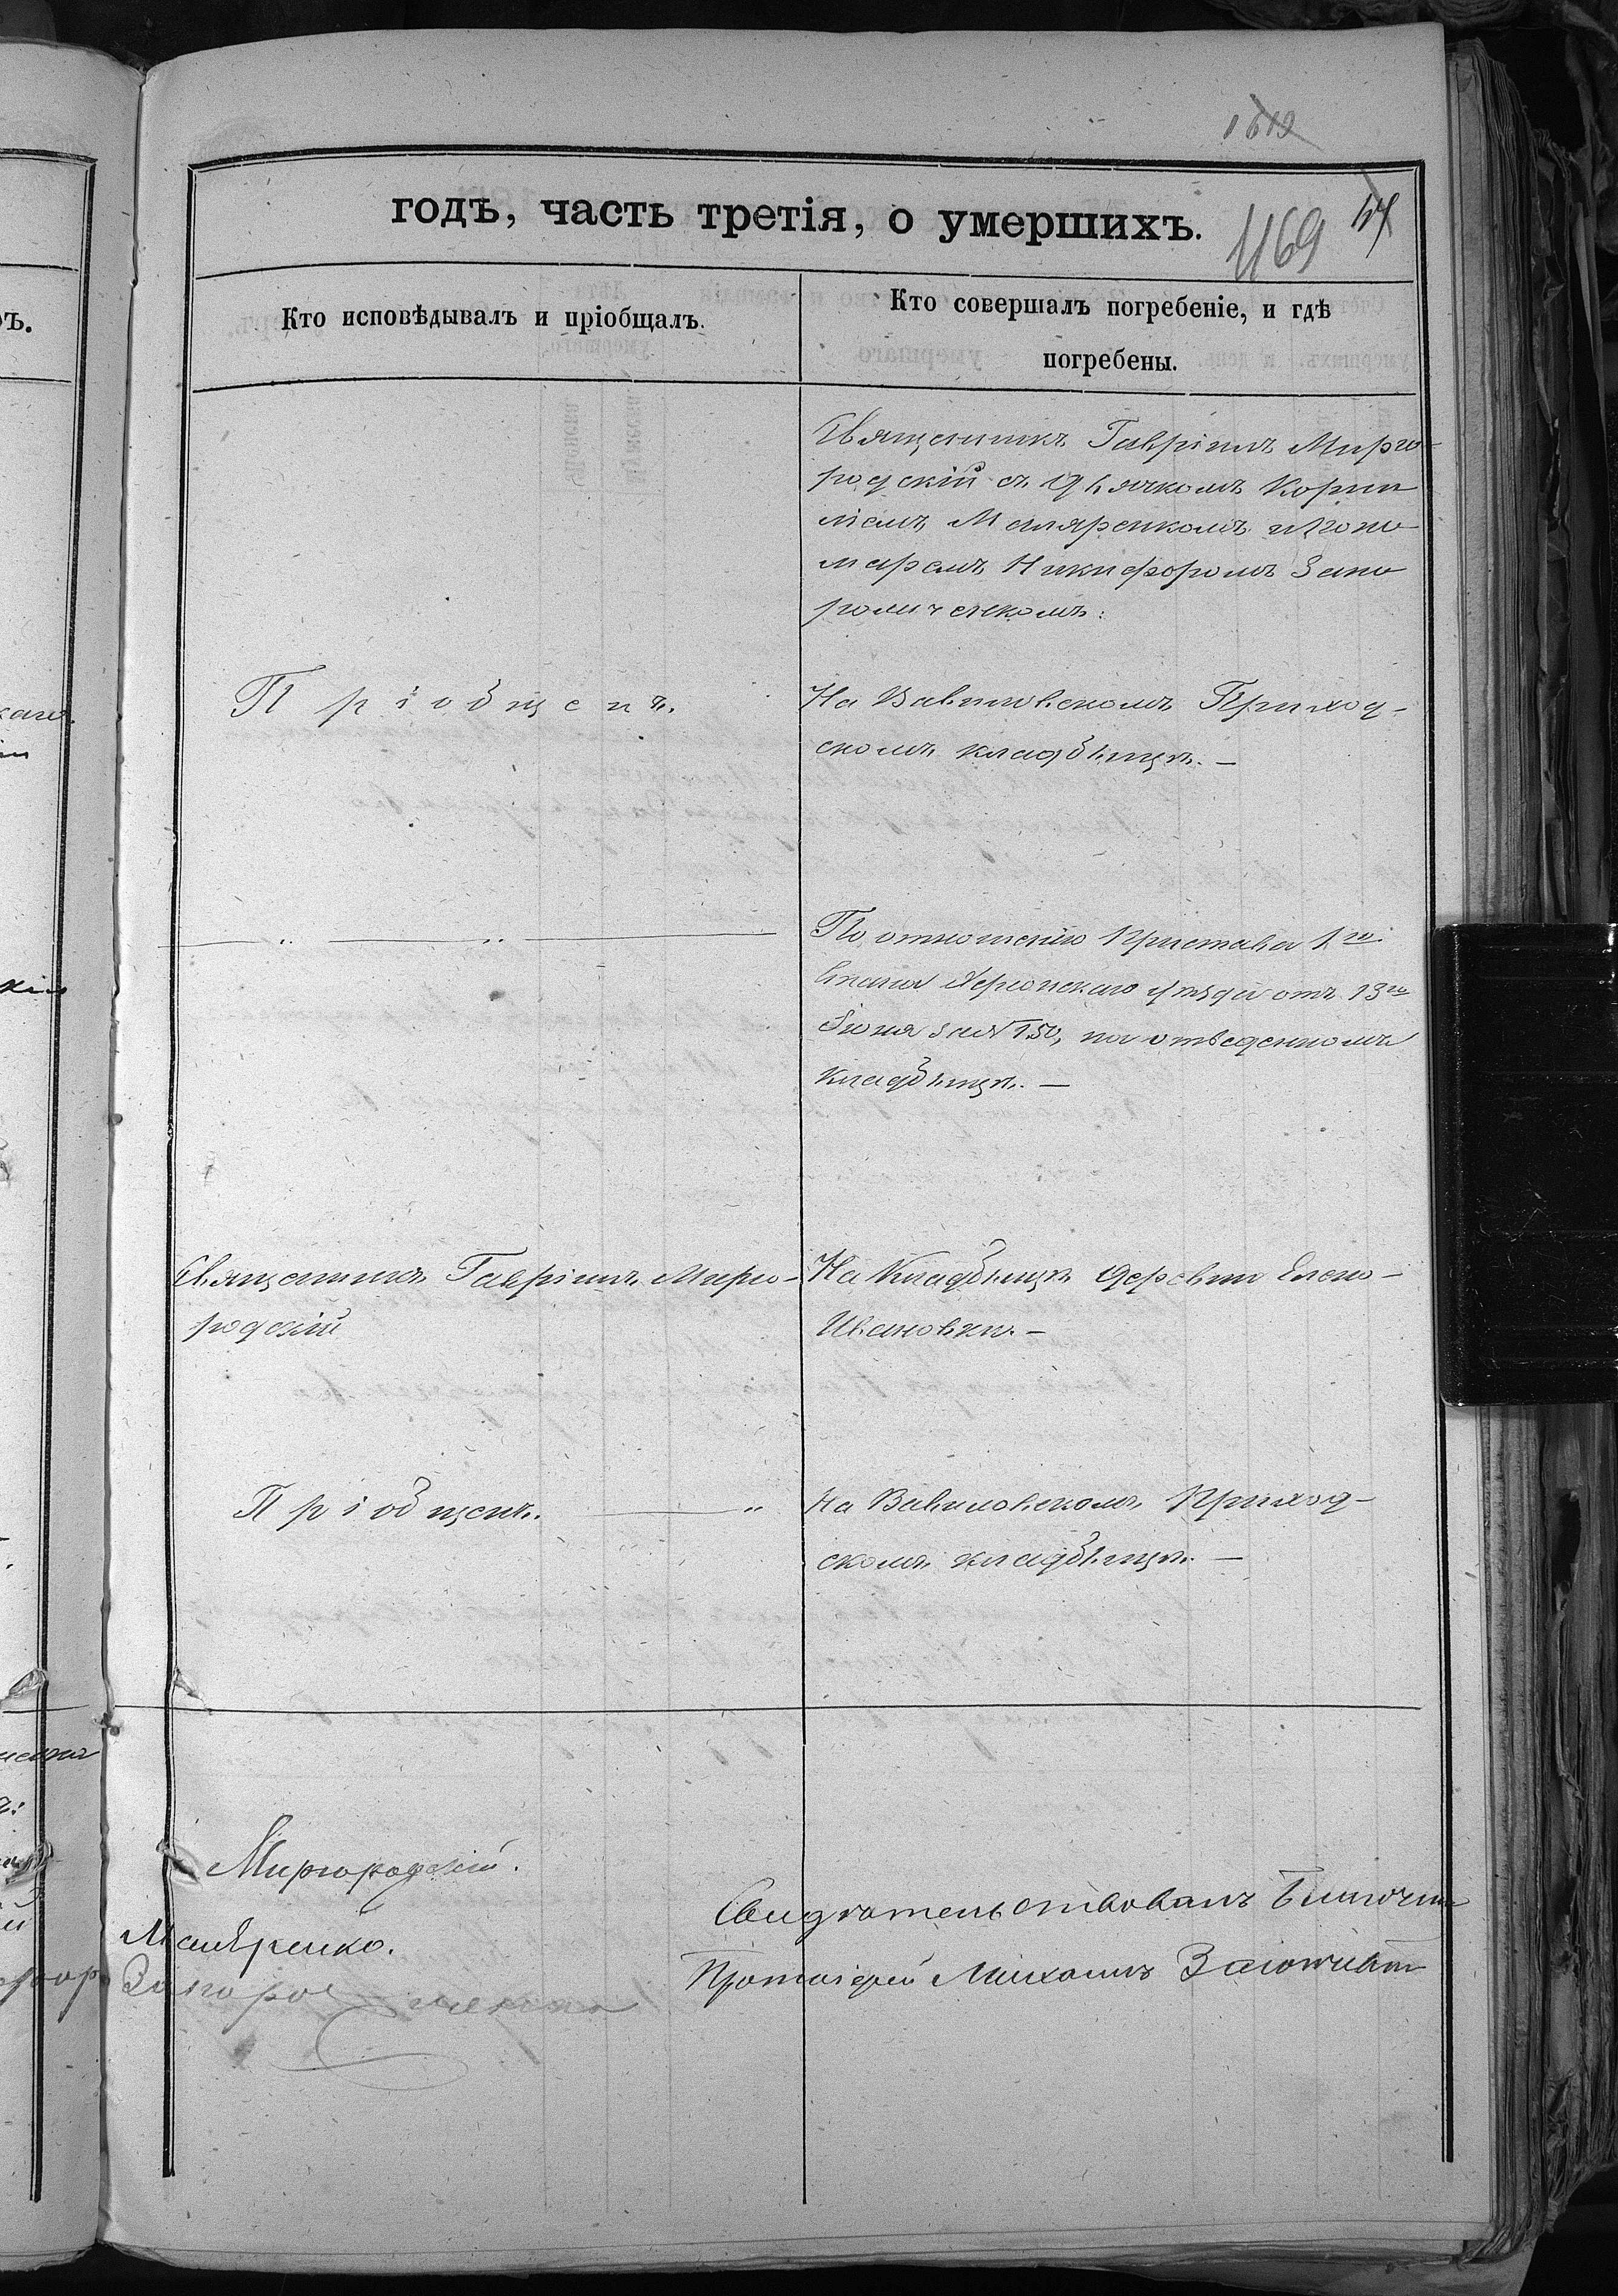 1619
годъ, часть третія, о умершихъ.
1169
Кто исповѣдывалъ и пріобщалъ.
Кто совершалъ погребеніе, и гдѣ
погребены.
Священникъ Гавріилъ Мирго-
родскій съ Дьячкомъ Корни
ліемъ Маляренкомъ и Поно
маремъ Никифоромъ Запо
рожченкомъ:
Пріобщенъ.
На Вавиловскомъ Приход-
скомъ кладбищѣ. –
По отношенію Пристава 1го
Стана Херсонскаго уѣзда отъ 13го
Іюня за № 150, на отведенномъ
Кладбищѣ. –
Священникъ Гавріилъ Мирго-
родскій
На Кладбищѣ деревни Елено-
Ивановки. –
Пріобщенъ.
На Вавиловскомъ Приход-
скомъ кладбищѣ. –
Миргородскій.
Маляренко.
Свидѣтельствовалъ
Протоіерей Михаилъ